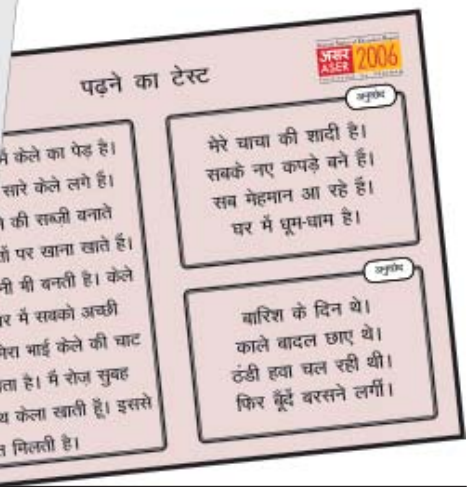 पढ़ने का टेस्ट
असर
ASER
2006
में केले का पेड़ है।
सारे केले लगे हैं।
की सब्ज़ी बनाते
पर खाना खाते हैं।
भी बनती है। केले
में सबको अच्छी
मेरा भाई केले की चाट
है। मैं रोज़ सुबह
केला खाती हूँ। इससे
मिलती है।
अनुच्छेद
मेरे चाचा की शादी है।
सबके नए कपड़े बने हैं।
सब मेहमान आ रहे हैं।
घर में धूम-धाम है।
अनुच्छेद
बारिश के दिन थे।
काले बादल छाए थे।
ठंडी हवा चल रही थी।
फिर बूँदें बरसने लगीं।